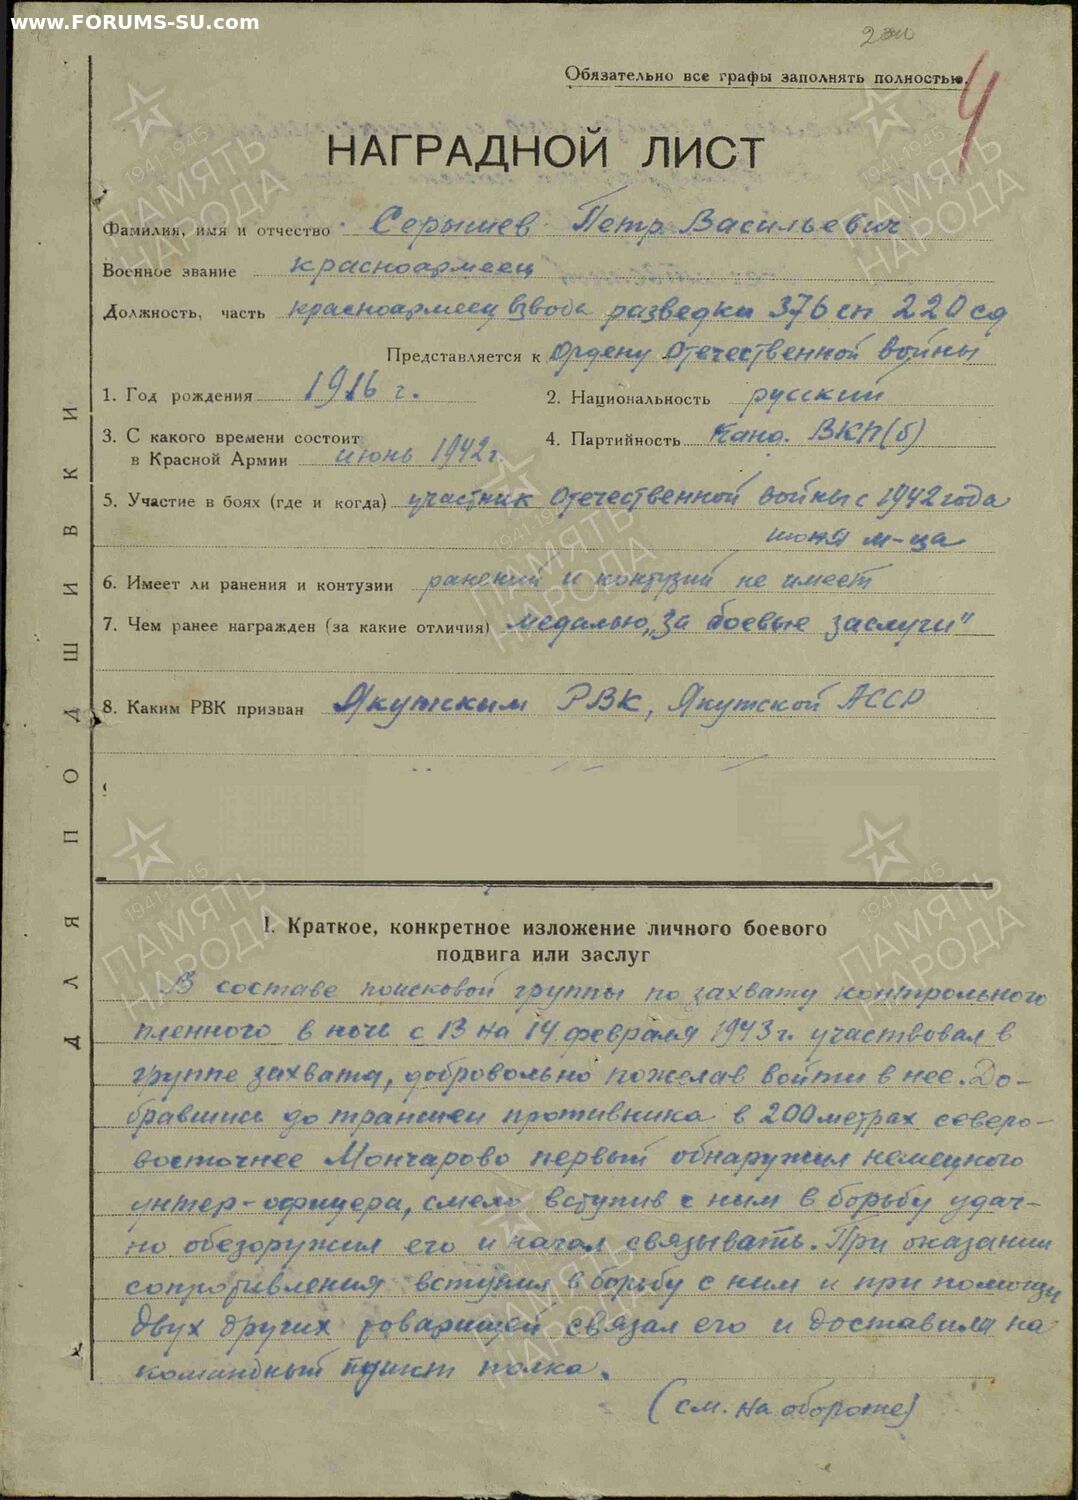 www.FORUMS-SU.com
Обязательно все графы заполнять полностью.
4
НАГРАДНОЙ ЛИСТ
Фамилия, имя и отчество Серышев Петр Васильевич
Военное звание красноармеец
Должность, часть красноармеец взвода разведки 376 сп 220 сд
Представляется к Ордену Отечественной войны
1. Год рождения 1916 г. 2. Национальность русский
3. С какого времени состоит в Красной Армии июнь 1942 г. 4. Партийность Канд. ВКП(б)
5. Участие в боях (где и когда) участник Отечественной войны с 1942 года
июня м-ца
6. Имеет ли ранения и контузии ранений и контузий не имеет
7. Чем ранее награжден (за какие отличия) медалью „За боевые заслуги"
8. Каким РВК призван Якутским РВК, Якутской АССР
ДЛЯ ПОДШИВКИ
1. Краткое, конкретное изложение личного боевого
подвига или заслуг
В составе поисковой группы по захвату контрольного
пленного в ночь с 13 на 14 февраля 1943 г. участвовал в
группе захвата, добровольно пожелав войти в нее. До-
бравшись до траншеи противника в 200 метрах северо-
восточнее Мончарово первый обнаружил немецкого
унтер-офицера, смело вступив с ним в борьбу удач-
но обезоружил его и начал связывать. При оказании
сопротивления вступил в борьбу с ним и при помощи
двух других товарищей связал его и доставили на
командный пункт полка.
(см. на обороте)
1941-1945
ПАМЯТЬ
НАРОДА